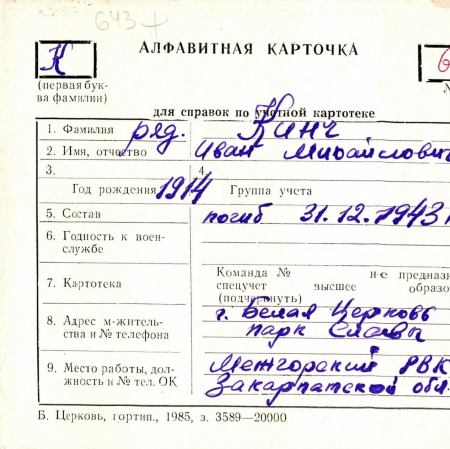 643
К
АЛФАВИТНАЯ КАРТОЧКА
(первая бук-
ва фамилии)
для справок по учетной картотеке
1. Фамилия ряд. Кинч
2. Имя, отчество Иван Михайлович
3. 4.
Год рождения 1914 Группа учета
5. Состав погиб 31.12.1943
6. Годность к воен-
службе
7. Картотека
Команда № не предназ
спецучет высшее образо
(подчеркнуть)
8. Адрес м-житель-
ства и № телефона
г. Белая Церковь
парк Славы
9. Место работы, дол-
жность и № тел. ОК
Межгорский РВК
Закарпатской обл.
Б. Церковь, гортип., 1985, з. 3589—20000